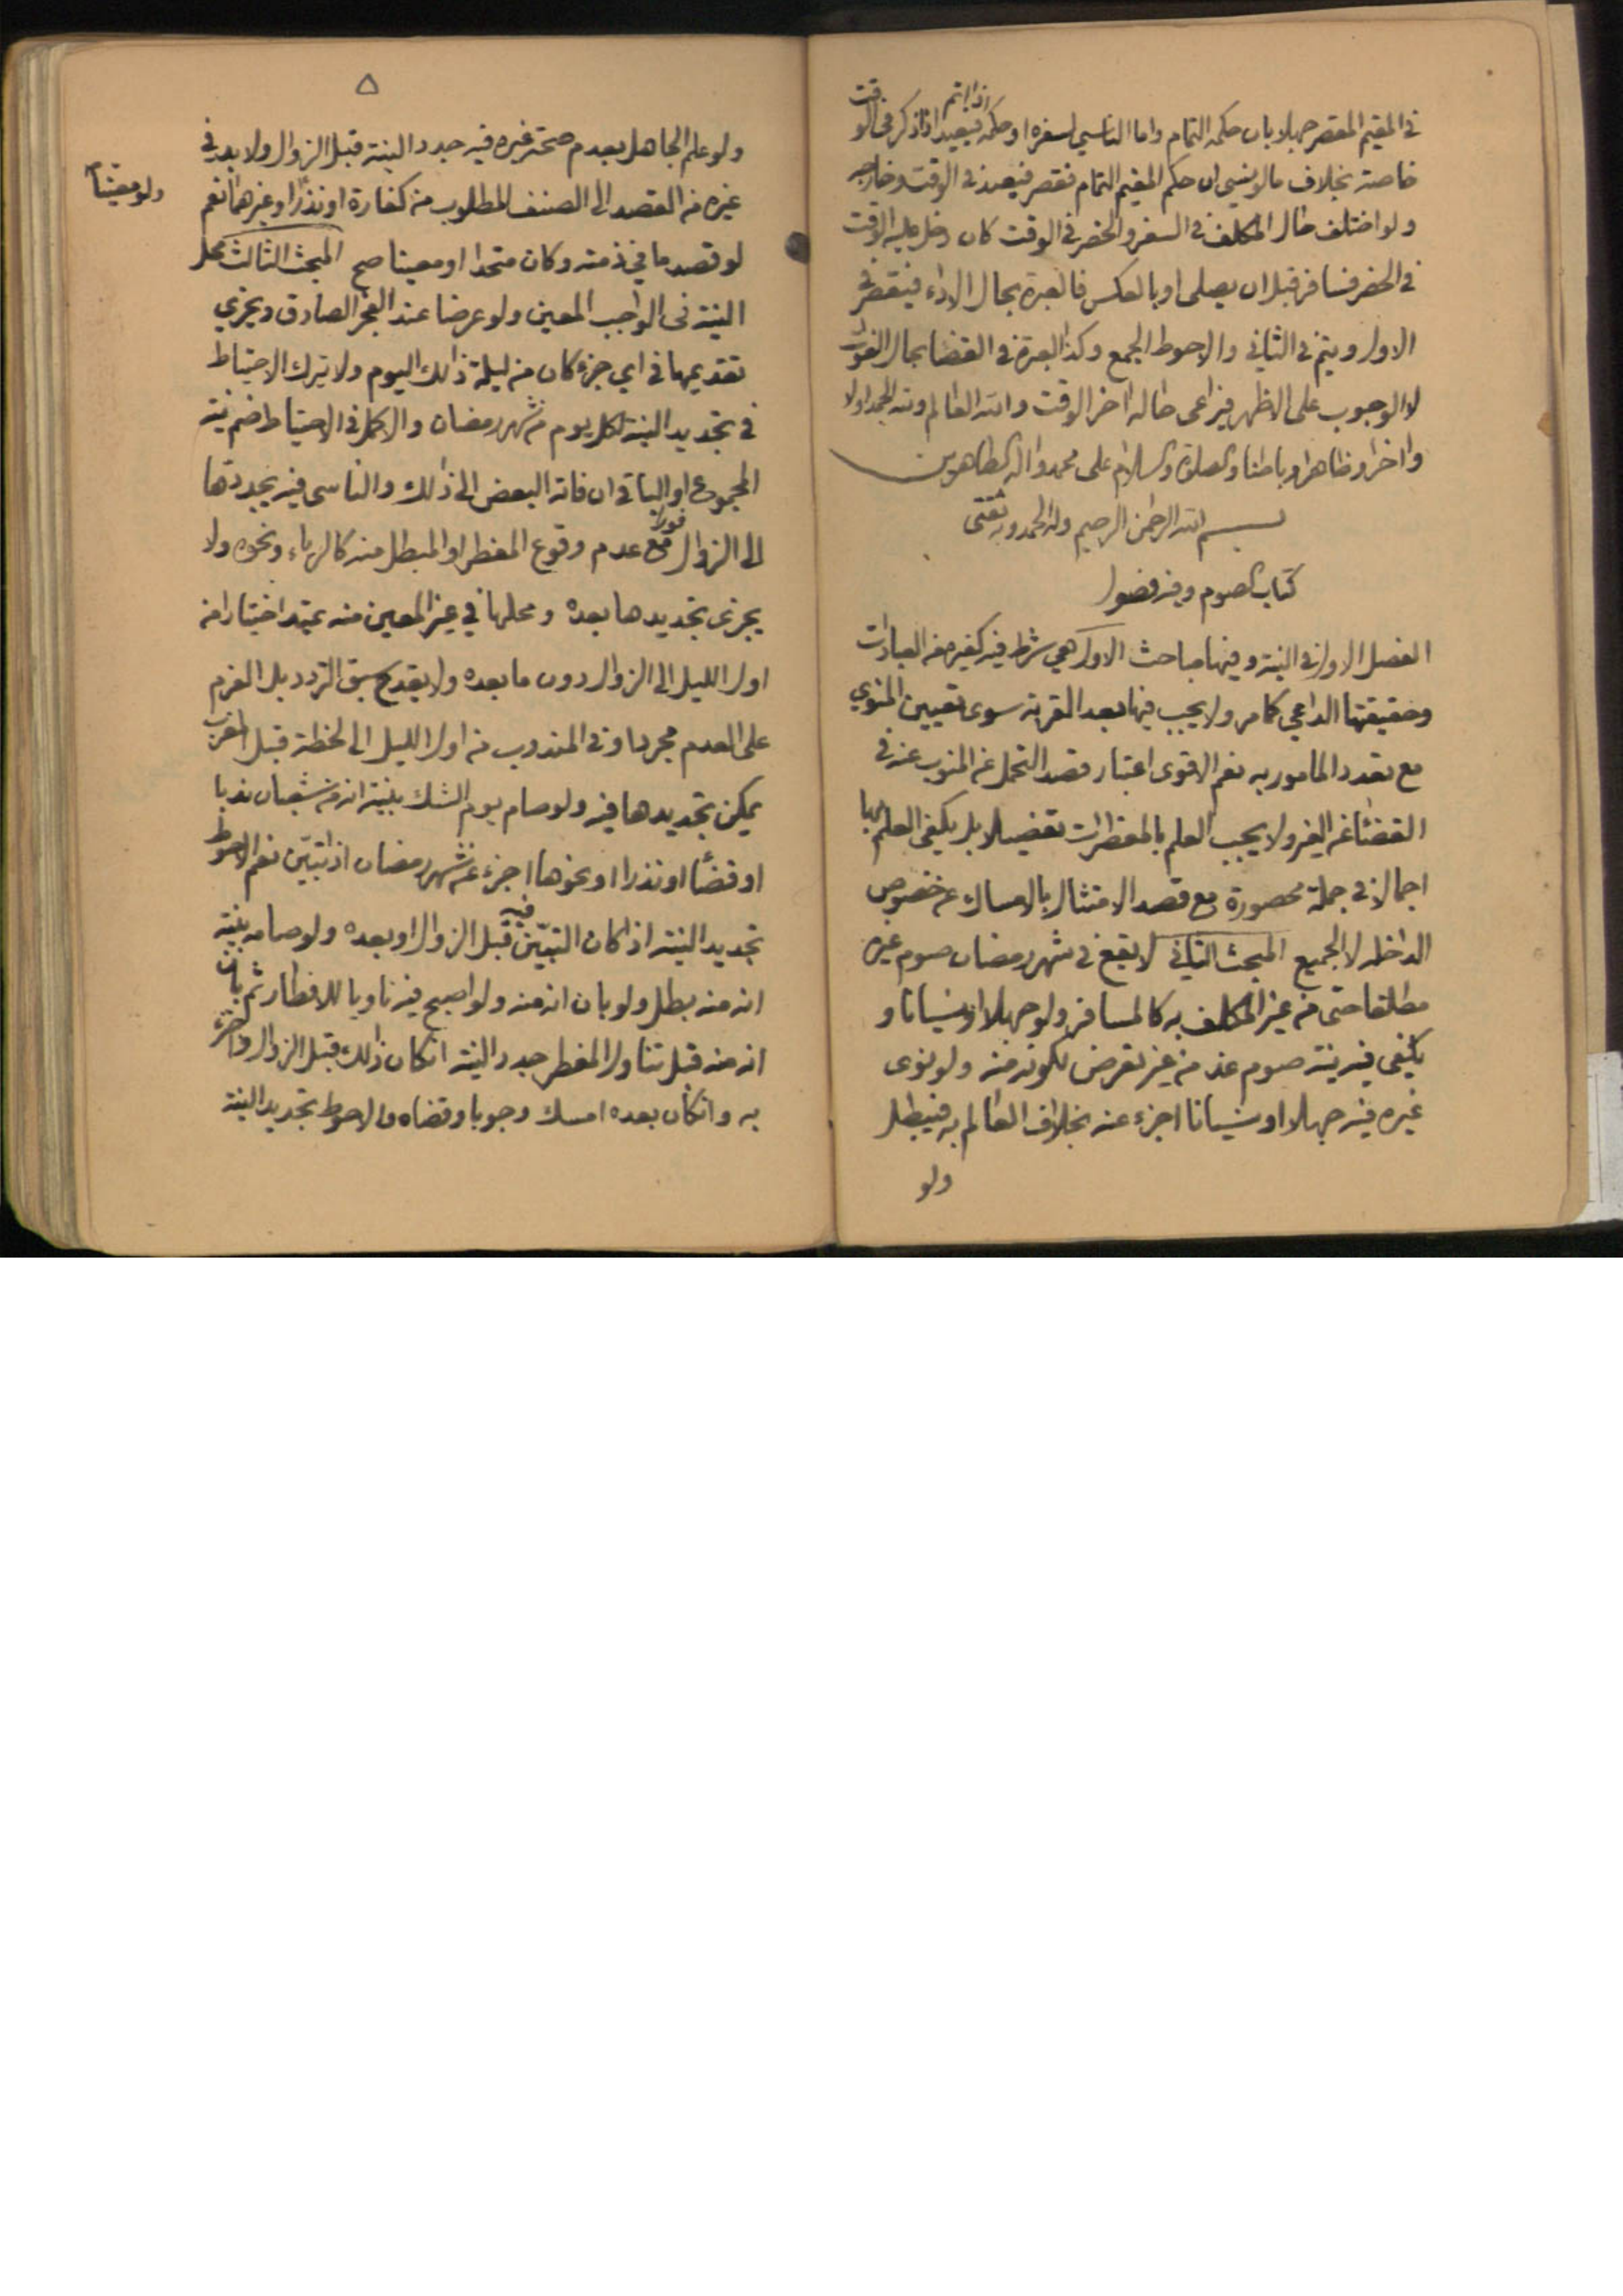 في المقيم المقصر جهلا بان حكمه التمام واما الناسي لسفره او حكمه اذا اتم فيعيد اذا ذكر في الوقت
خاصة بخلاف ما لو نسي ان حكم المقيم التمام فقصر فيعيد في الوقت وخارجه
ولو اختلف حال المكلف في السفر والحضر في الوقت كان دخل عليه الوقت
في الحضر فسافر قبل ان يصلي او بالعكس فالعبرة بحال الاداء فيقصر في
الاول ويتم في الثاني والاحوط الجمع وكذا العبرة في القضا بحال الفوات
لا الوجوب على الاظهر فيراعى حاله اخر الوقت والله العالم ولله الحمد اولا
واخرا وظاهرا وباطنا والصلوة والسلام على محمد واله الطاهرين
بسم الله الرحمن الرحيم وله الحمد وبه ثقتي
كتاب الصوم وفيه فصول
الفصل الاول في النية وفيها مباحث الاول هي شرط فيه كغيره من العبادات
وحقيقتها الداعي كما مر ولا يجب فيها بعد القربة سوى تعيين المنوي
مع تعدد المامور به نعم الاقوى اعتبار قصد التحمل عن المنوب عنه في
القضا عن الغير ولا يجب العلم بالمفطرات تفصيلا بل يكفي العلم بها
اجمالا في جملة محصورة مع قصد الامتثال بالامساك عن خصوص
الداخله لا الجميع المبحث الثاني لا يقع في شهر رمضان صوم غيره
مطلقا حتى من غير المكلف به كالمسافر ولو جهلا او نسيانا و
يكفي فيه نية صوم غد من غير تعرض لكونه منه ولو نوى
غيره فيه جهلا او نسيانا اجزء عنه بخلاف العالم به فيبطل
ولو
۵
ولو علم الجاهل بعدم صحة غيره فيه جدد النية قبل الزوال ولا بد في
غيره من القصد الى الصنف المطلوب من كفارة او نذر او غيرهما نعم
ولو معينا
لو قصد ما في ذمته وكان متحدا او معينا صح المبحث الثالث محل
النية في الواجب المعين ولو عرضا عند الفجر الصادق ويجزي
تقديمها في اي جزء كان من ليلة ذالك اليوم ولا يترك الاحتياط
في تجديد النية لكل يوم من شهر رمضان والاكمل في الاحتياط ضم نية
المجموع او الباقي ان فاته البعض الى ذالك والناسي فيه يجددها
الى الزوال فورا مع عدم وقوع المفطر او المبطل منه كالرياء ونحوه ولا
يجزى تجديدها بعده ومحلها في غير المعين منه يمتد اختيارا من
اول الليل الى الزوال دون ما بعده ولا يقدح سبق التردد بل العزم
على العدم مجردا وفي المندوب من اول الليل الى لحظة قبل المغرب
يمكن تجديدها فيه ولو صام يوم الشك بنية انه من شعبان ندبا
او قضاء او نذرا او نحوها اجزء عن شهر رمضان اذا تبيّن نعم الاحوط
تجديد النية اذا كان التبيّن فيه قبل الزوال او بعده ولو صامه بنية
انه منه بطل ولو بان انه منه ولو اصبح فيه ناويا للافطار ثم بان
انه منه قبل تناول المفطر جدد النية ان كان ذالك قبل الزوال واجزء
به وان كان بعده امسك وجوبا وقضاه والاحوط تجديد النية